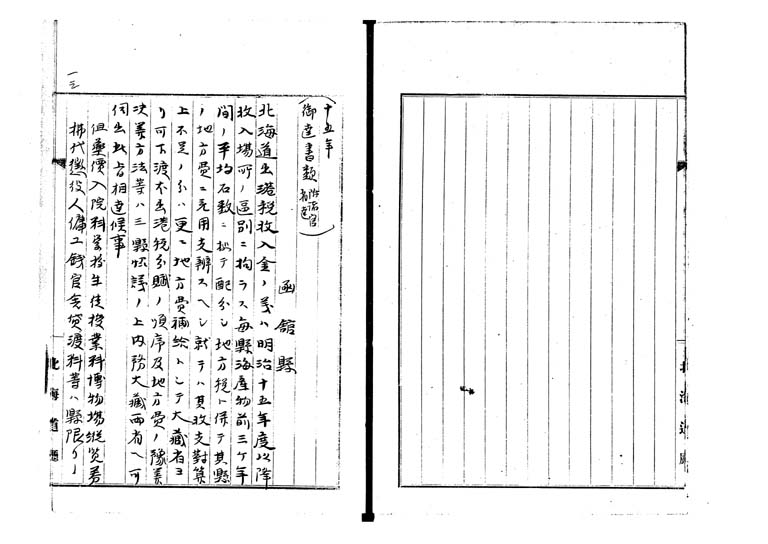 十五年
(御達書類 附 諸官省達)
函館縣
北海道出港税收入金ノ義ハ明治十五年度以降
收入場所ノ區別ニ拘ラス毎縣海産物前三ケ年
間ノ平均石數ニ拠テ配分シ地方税ト併テ其縣
ノ地方費ニ充用支辨スヘシ就テハ其收支對算
上不足ノ分ハ更ニ地方費補給トシテ大藏省ヨ
リ可下渡尤出港税分賦ノ順序及地方費ノ豫算
决算方法等ハ三縣協議ノ上内務大藏両省ヘ可
伺出此旨相達候事
但藥價入院料學校生徒授業料博物場縱覧券
拂代懲役人傭工錢官舎貸渡料等ハ縣限リノ
一三
北海道廳
北海道廳